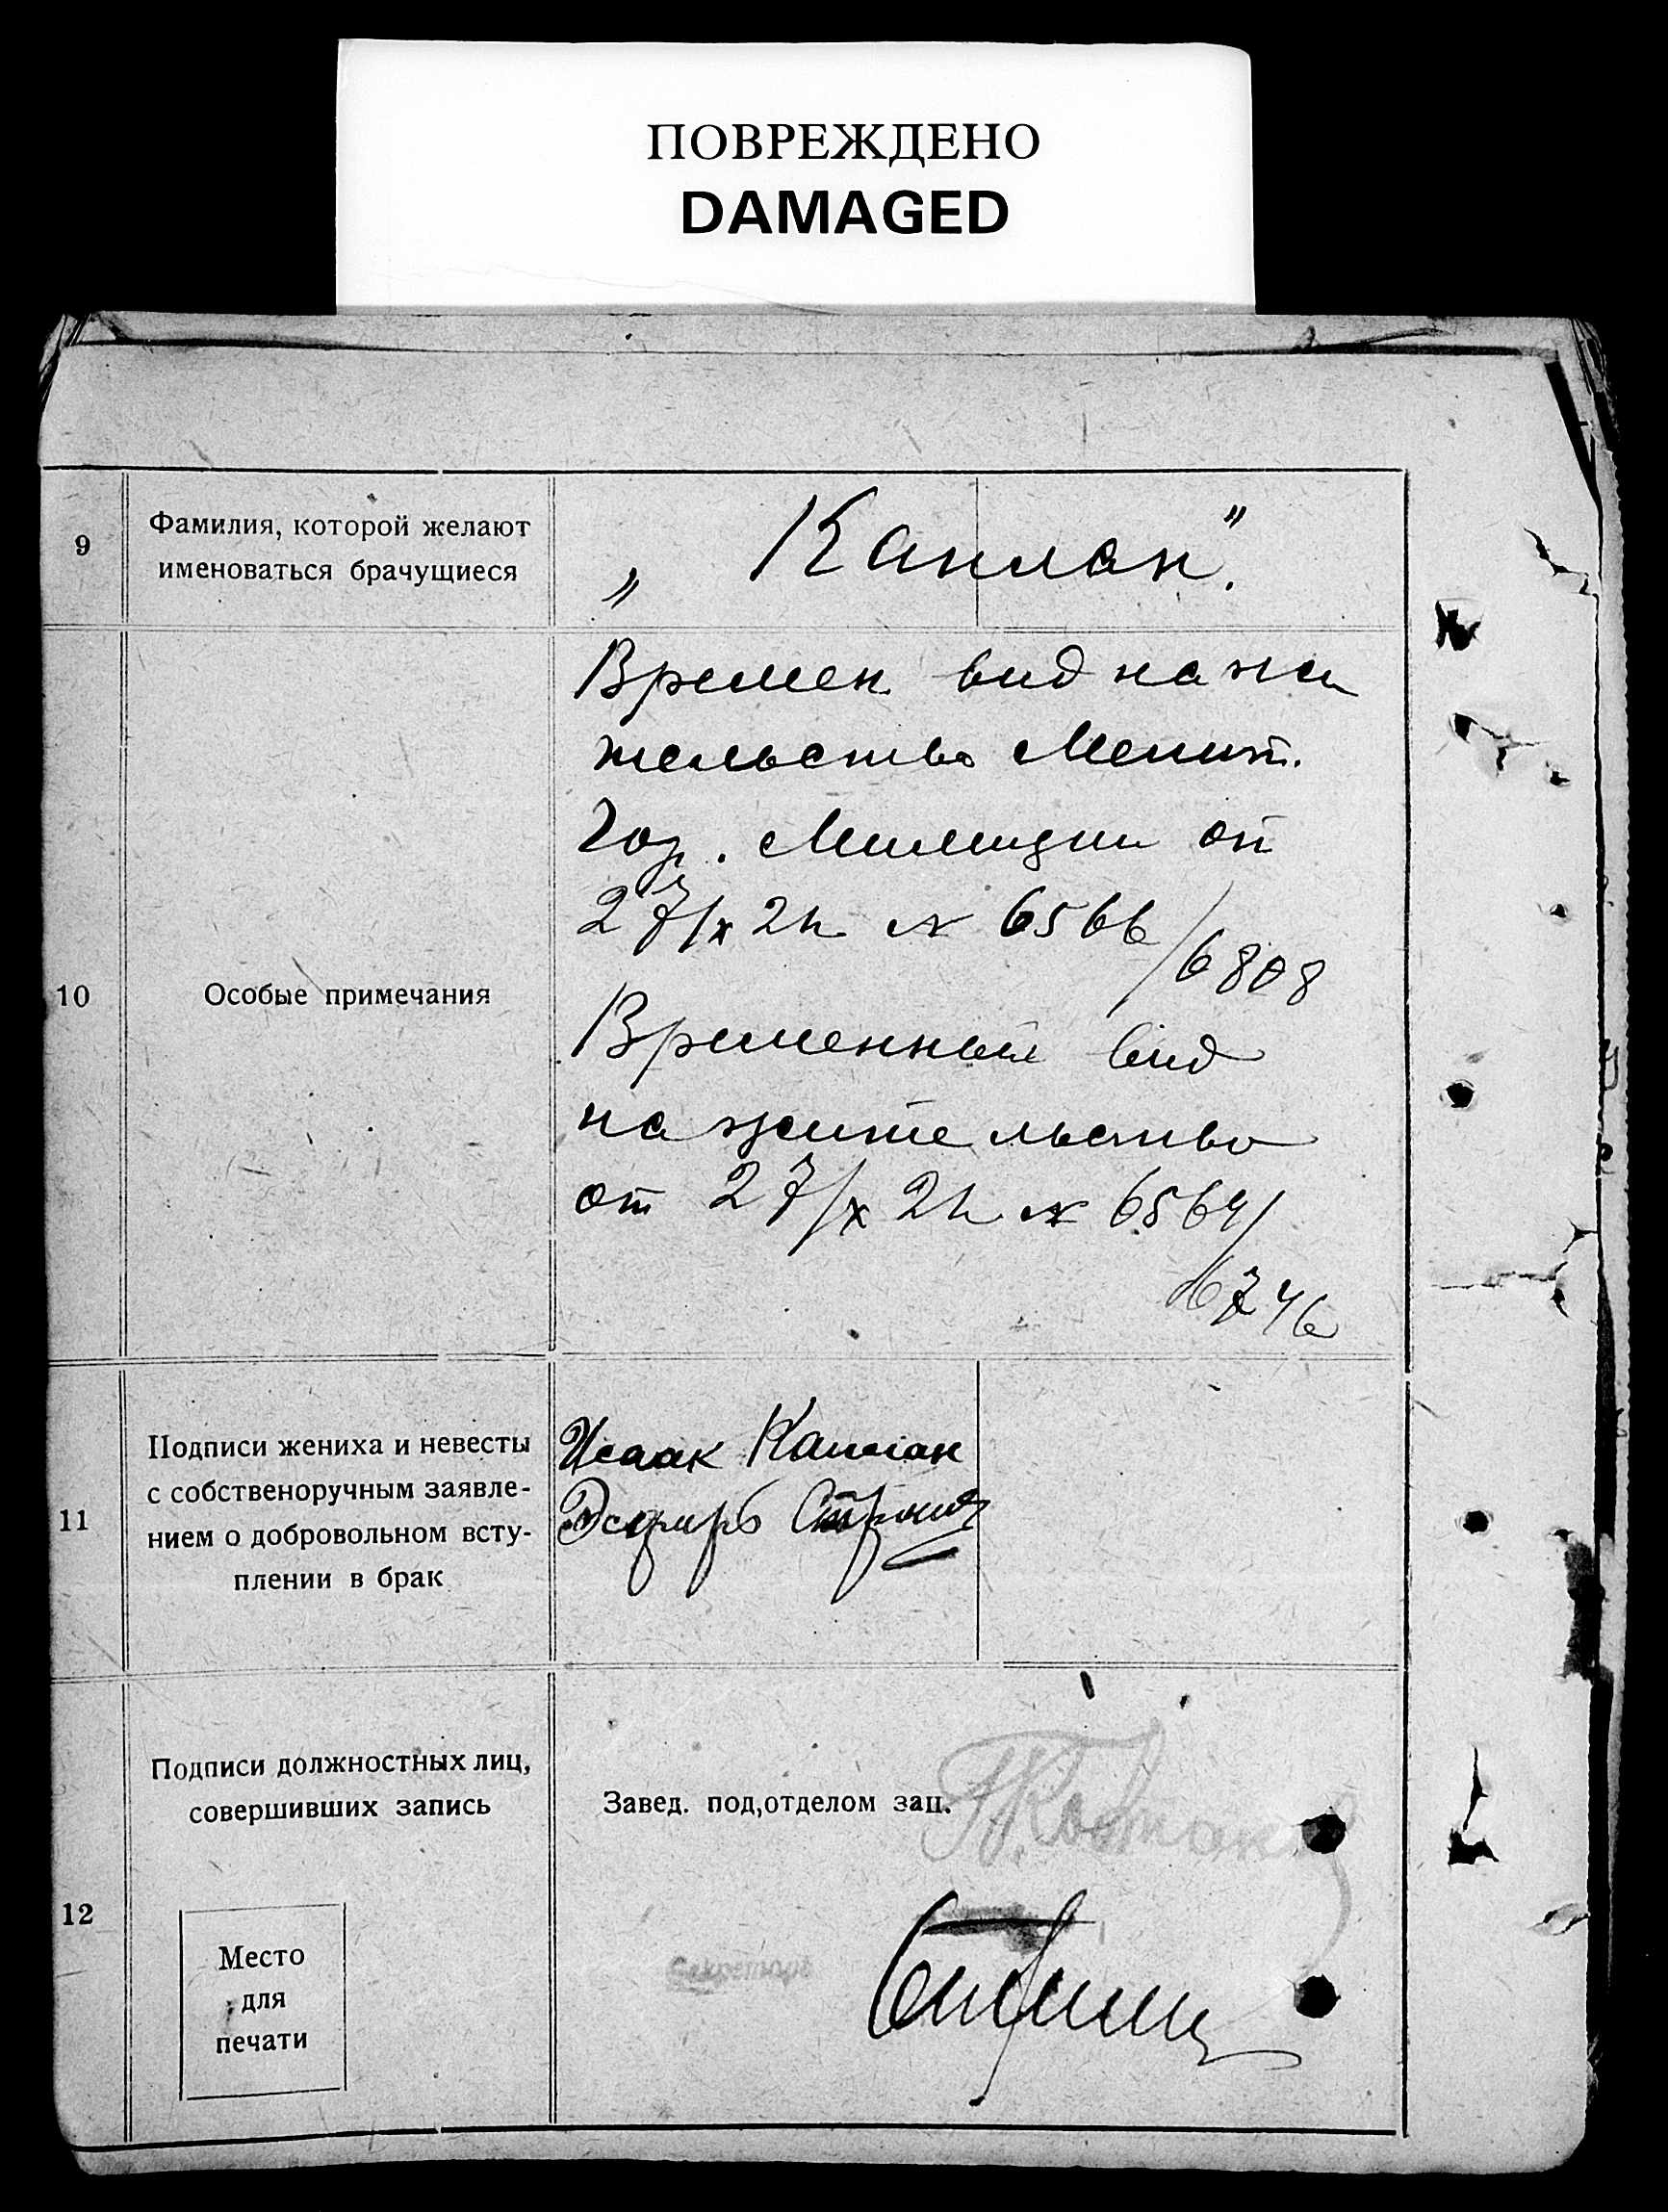 ПОВРЕЖДЕНО
DAMAGED
9
Фамилия, которой желают
именоваться брачущиеся
„ Каплан".
10
Особые примечания
Времен вид на жи
тельство
Гор. Милиции от
27/x 2 № 6566/6808
Временный вид
на жительство
от 27/x 2 № 6564/
6746
11
Подписи жениха и невесты
с собственоручным заявле-
нием о добровольном всту-
плении в брак
Исаак Каплан
Эсфирь
12
Подписи должностных лиц,
совершивших запись
Место
для
печати
Завед. под,отделом зац.
Секретарь